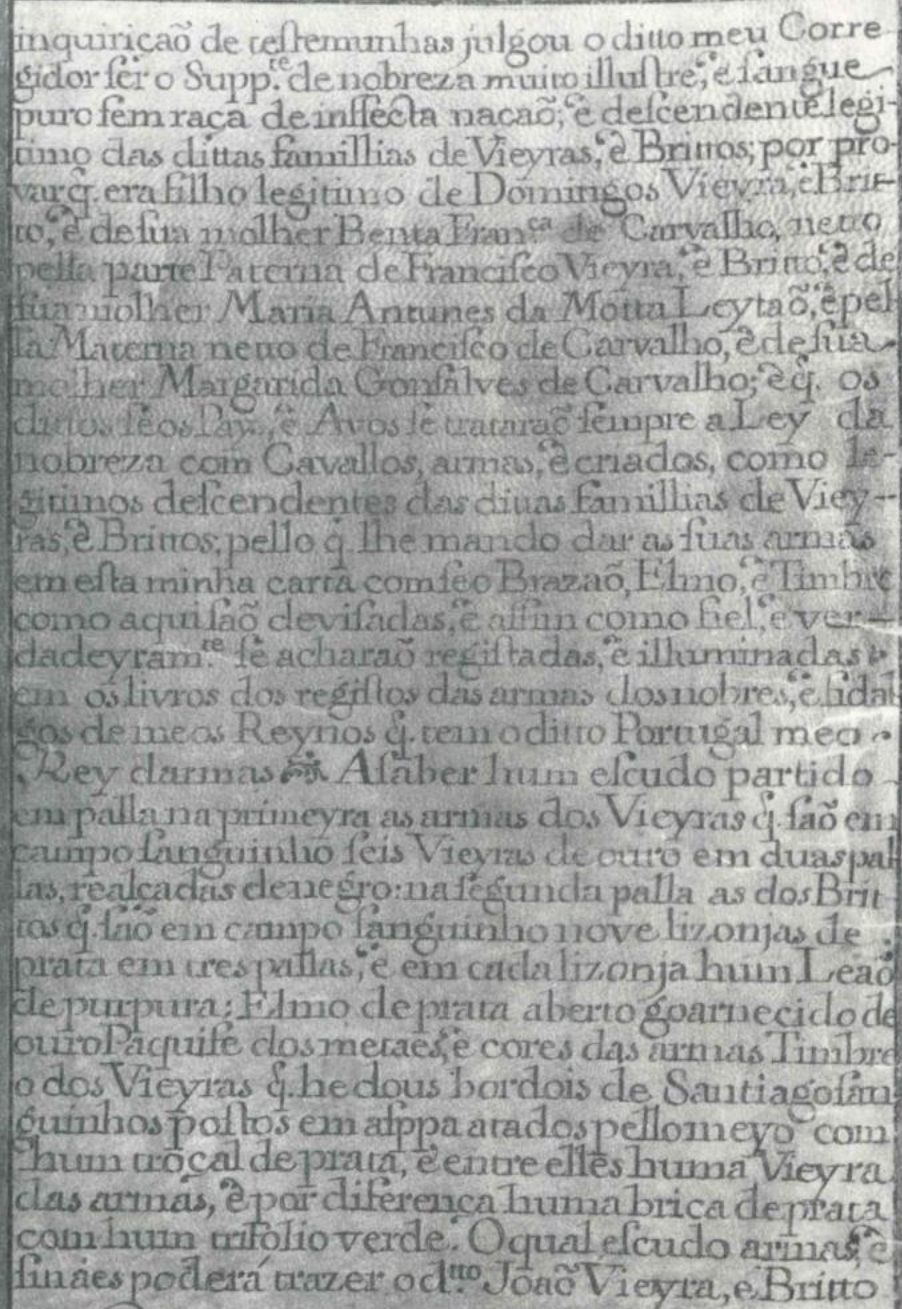 inquiriçaõ de testemunhas julgou o ditto meu Corre
gidor ser o Supp.te de nobreza muito illustre, è sangue
puro sem raça de inffecta naçaõ, è descendente legi-
timo das dittas famillias de Vieyras, è Brittos; por pro-
var q. era filho legitimo de Domingos Vieyra, è Brit-
to, è de sua molher Benta Fran.ca de Carvalho, netto
pella parte Paterna de Francisco Vieyra, è Britto, è de
sua molher Maria Antunes da Motta Leytaõ, è pel
la Materna netto de Francisco de Carvalho, è de sua
molher Margarida Gonsalves de Carvalho; è q. os
dittos seos Pays, è Avos se trataraõ sempre a Ley da
nobreza com Cavallos, armas, è criados, como le-
gitimos descendentes das dittas famillias de Viey-
ras, è Brittos; pello q. lhe mando dar as suas armas
em esta minha carta com seo Brazaõ, Elmo, è Timbre
como aqui saõ devisadas, è assim como fiel, è ver-
dadeyram.te se acharaõ registadas, è illuminadas
em os livros dos registos das armas dos nobres, è fidal
gos de meos Reynos q. tem o ditto Portugal meo
Rey darmas Asaber hum escudo partido
em palla na primeyra as armas dos Vieyras q. saõ em
campo sanguinho seis Vieyras de ouro em duas pal
las, realçadas de negro: na segunda palla as dos Brit
tos q. saõ em campo sanguinho nove lizonjas de
prata em tres pallas, è em cada lizonja hum Leaõ
de purpura; Elmo de prata aberto goarnecido de
ouro Paquife dos metaes, è cores das armas Timbre
o dos Vieyras q. he dous bordois de Santiago san
guinhos postos em asppa atados pello meyo com
hum troçal de prata, è entre elles huma Vieyra
das armas, è por diferença huma brica de prata
com hum trifolio verde. O qual escudo armas, è
sinaes poderá trazer o d.tto Joaõ Vieyra, e Britto